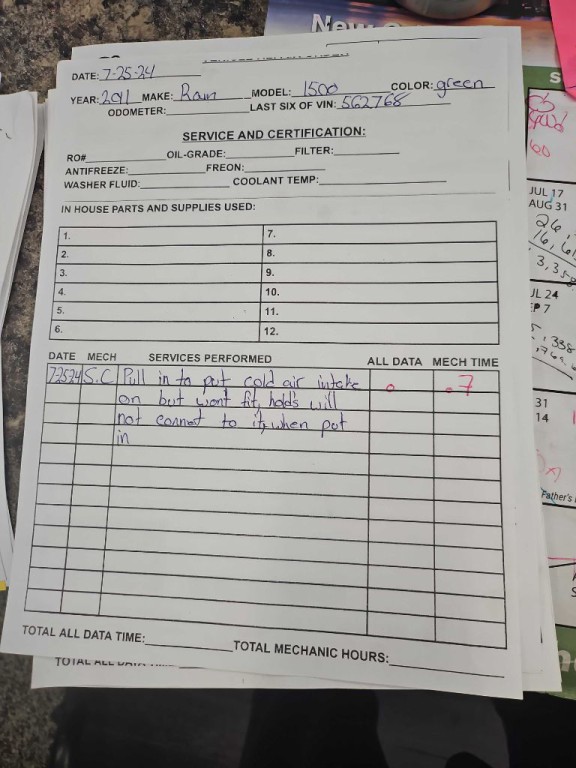 New
DATE: 7-25-24
YEAR: 2011 MAKE: Ram MODEL: 1500 COLOR: green
ODOMETER: LAST SIX OF VIN: 562768
SERVICE AND CERTIFICATION:
RO# OIL-GRADE: FILTER:
ANTIFREEZE: FREON:
WASHER FLUID: COOLANT TEMP:
IN HOUSE PARTS AND SUPPLIES USED:
1. 7.
2. 8.
3. 9.
4. 10.
5. 11.
6. 12.
DATE MECH SERVICES PERFORMED ALL DATA MECH TIME
72524 S.C Pull in to put cold air intake 0 .7
on but wont fit, holds will
not connect to it, when put
in
TOTAL ALL DATA TIME: TOTAL MECHANIC HOURS:
TOTAL ALL
S
60
JUL 17
AUG 31
26,
16,
3,35
JUL 24
SEP 7
338
31
14
Father's